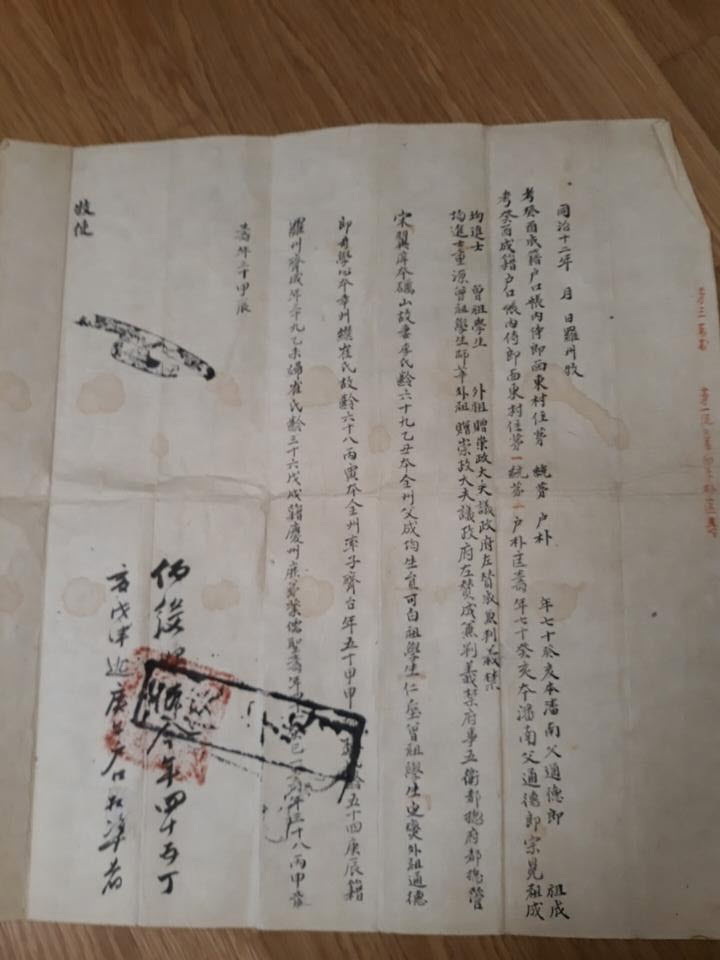 同治十二年 月 日羅州牧
考癸酉成籍户口帳內侍郎面東村住第 統第 户朴 年七十癸亥本潘南父通德郎 祖成
考癸酉成籍户口帳內侍郎面東村住第一統第二户朴匡壽年七十癸亥本潘南父通德郎宗晃祖成
均進士 曾祖學生 外祖 贈崇政大夫議政府左贊成兼判義禁
均進士重源曾祖學生師華外祖 贈崇政大夫議政府左贊成兼判義禁府事五衛都摠府都摠管
宋翼淳本礪山故妻李氏齡六十九乙丑本全州父成均生員可白祖學生仁 曾祖學生史燮外祖通德
郎奇學心本幸州繼崔氏故齡六十八丙寅本全州率子齊台年五十甲申 齡五十四庚辰籍
羅州齊成年三十九乙未婦崔氏齡三十六戊戌籍慶州庶弟業儒聖壽年 年三十八丙申
壽年三十甲辰
年四十五丁
户口相準者
牧使